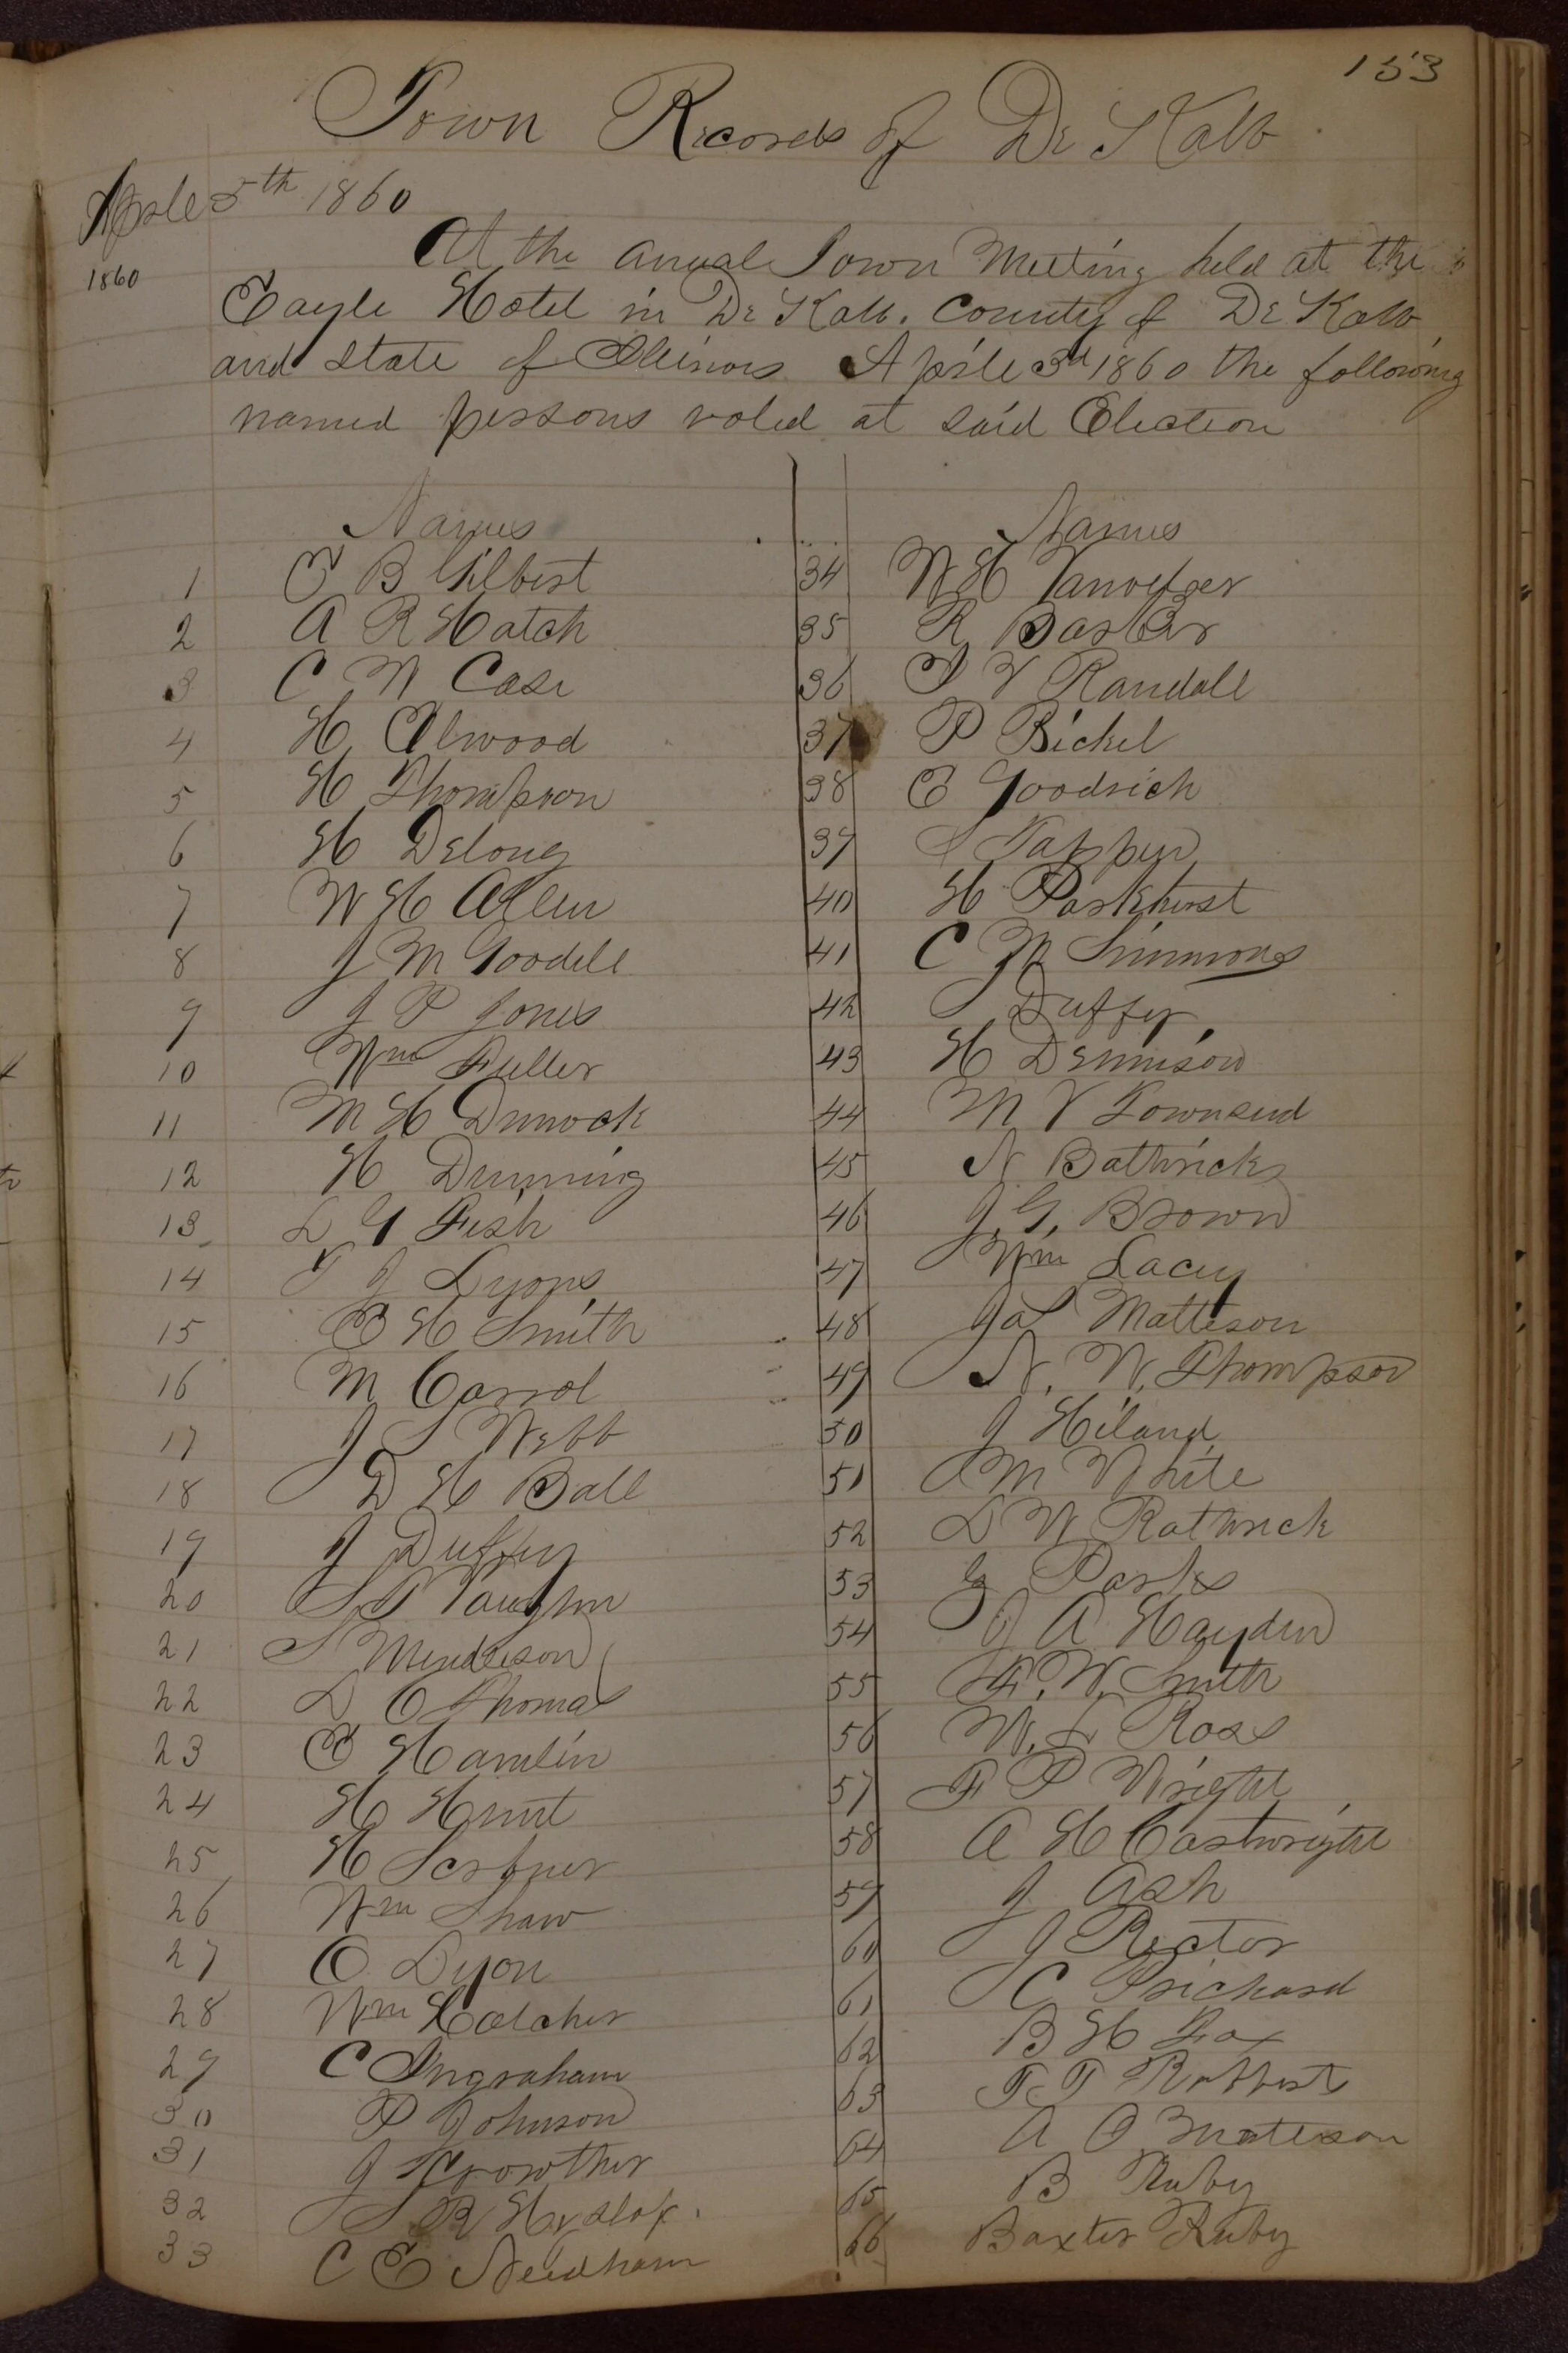 153
Town Records of De Kalb
Aprile 5th 1860
1860
At the anual Town Meeting held at the
Eagle Hotel in De Kalb. County of De Kalb
and State of Illinois Aprile 3d 1860 the following
named persons voted at said Election
Names
1 E B Gilbert
2 A R Hatch
3 C W Case
4 H Elwood
5 H Thompson
6 H Delong
7 W H Allen
8 J M Goodell
9 J P Jones
10 Wm Fuller
11 M H Dimock
12 H Dunning
13 L G Fish
14 T J Lyons
15 E H Smith
16 M Carrol
17 J S Webb
18 D H Ball
19 J Duffey
20 S P Vaughn
21 S
22 L O Thomas
23 E Hamlin
24 H Hunt
25 H
26 Wm Shaw
27 O Dyon
28 Wm
29 C Ingraham
30 P Johnson
31 J Crowther
32 S R Hyslop.
33 C E Needham
Names
34 W H
35 R Barber
36 I V Randall
37 P Bickel
38 E Goodrich
39 S Tappen
40 H Parkhurst
41 C M Simmons
42 Duffey
43 H Dennison
44 M V Townsend
45 N Bathrick
46 J. G. Brown
47 Wm Lacey
48 Jas Matteson
49 N. W. Thompson
50 J Hiland
51 M White
52 L W Rathrick
53 G Parks
54 J A Hayden
55 F. W. Smith
56 W. L Ross
57 F P Wright
58 A H Cartwright
59 J Ash
60 J Rector
61 C Prichard
62 B H Fox
63 F T
64 A O Mateson
65 B Ruby
66 Baxter Ruby